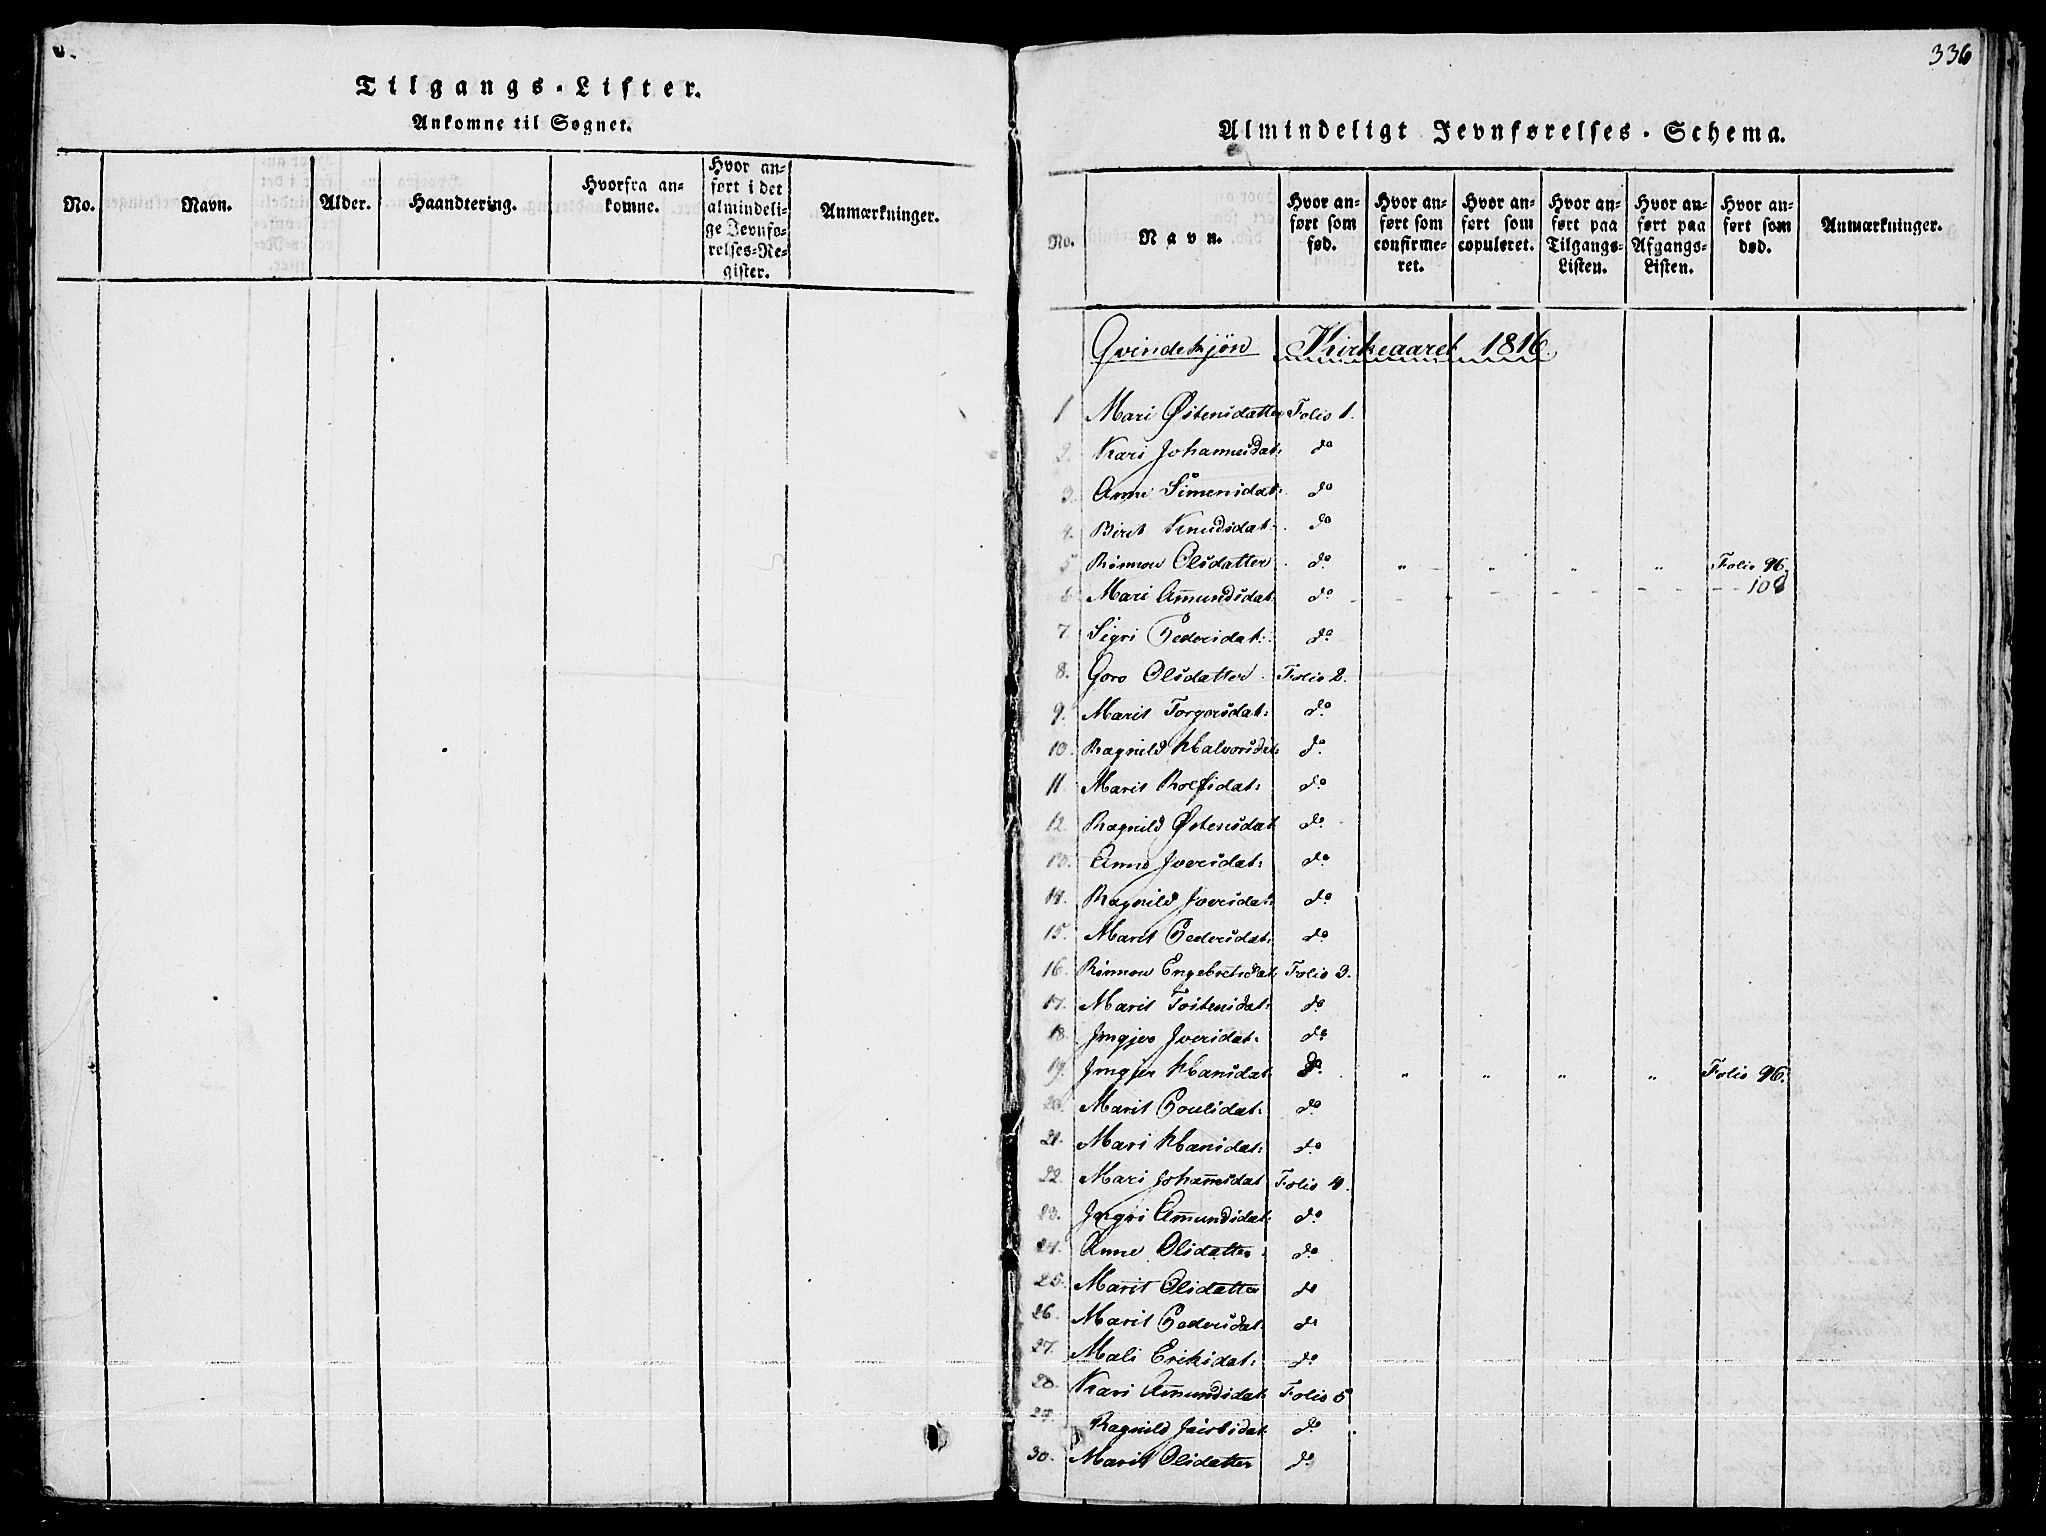 Tilgangs-Lister.
Ankomne til Sognet.
No.
Navn.
Alder.
Haandtering.
Hvorfra an-
komne.
Hvor an-
ført i det
almindeli-
ge Jevnfø-
relses-Re-
gister.
Anmærkninger.
336
Almindeligt Jevnførelses-Schema.
No.
Navn.
Hvor an-
ført som
fød.
Hvor an-
ført som
confirme-
ret.
Hvor an-
ført som
copuleret.
Hvor an-
ført paa
Tilgangs-
Listen.
Hvor an-
ført paa
Afgangs-
Listen.
Hvor an-
ført som
død.
Anmærkninger.
Qvindekjøn Kirkeaaret 1816.
1 Mari Østensdatter Folio 1.
2. Kari Johannesdat: do
3. Anne Simensdat: do
4. Berit Knudsdat: do
5 Rønnou Olsdatter do " " " " Folio 96.
6 Mari Amundsdat: do - - - - 108
7. Sigri Pedersdat: do
8. Goro Olsdatter Folio 2.
9. Marit Torgersdat: do
10. Ragnild Halvorsdat: do
11 Marit Rolfsdat: do
12. Ragnild Østensdat do
13. Anne Iversdat: do
14. Ragnild Iversdat: do
15. Marit Pedersdat: do
16. Rønnou Engebretsdat Folio 3.
17. Marit Tostensdat: do
18. Jngjer Iversdat: do
19. Jngjer Hansdat do " " " " Folio 96.
20. Marit Poulsdat: do
21. Mari Hansdat: do
22. Mari Johannesdat Folio 4.
23. Jngri Amundsdat: do
24. Anne Olsdatter do
25. Marit Olsdatter do
26. Marit Pedersdat: do
27. Mali Eriksdat: do
28. Kari Amundsdat Folio 5
29. Ragnild Jacobsdat do
30. Marit Olsdatter do